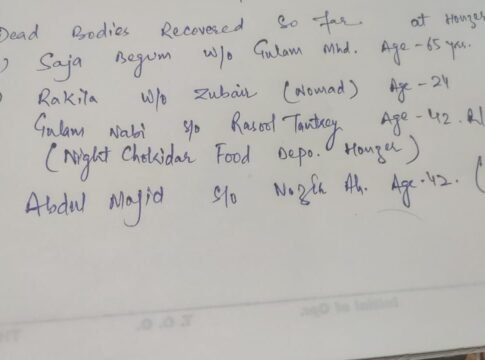 Dead Bodies Recovered So Far. at Honzer
) Saja Begum W/o Gulam Mhd. Age - 65 yrs.
Rakila W/o Zubair (Nomad) Age - 24
Gulam Nabi S/o Rasool Tantrey Age - 42. R/
(Night Chokidar Food Depo. Honzer)
Abdul Majid S/o Ah. Age - 42. (
T.O.O.